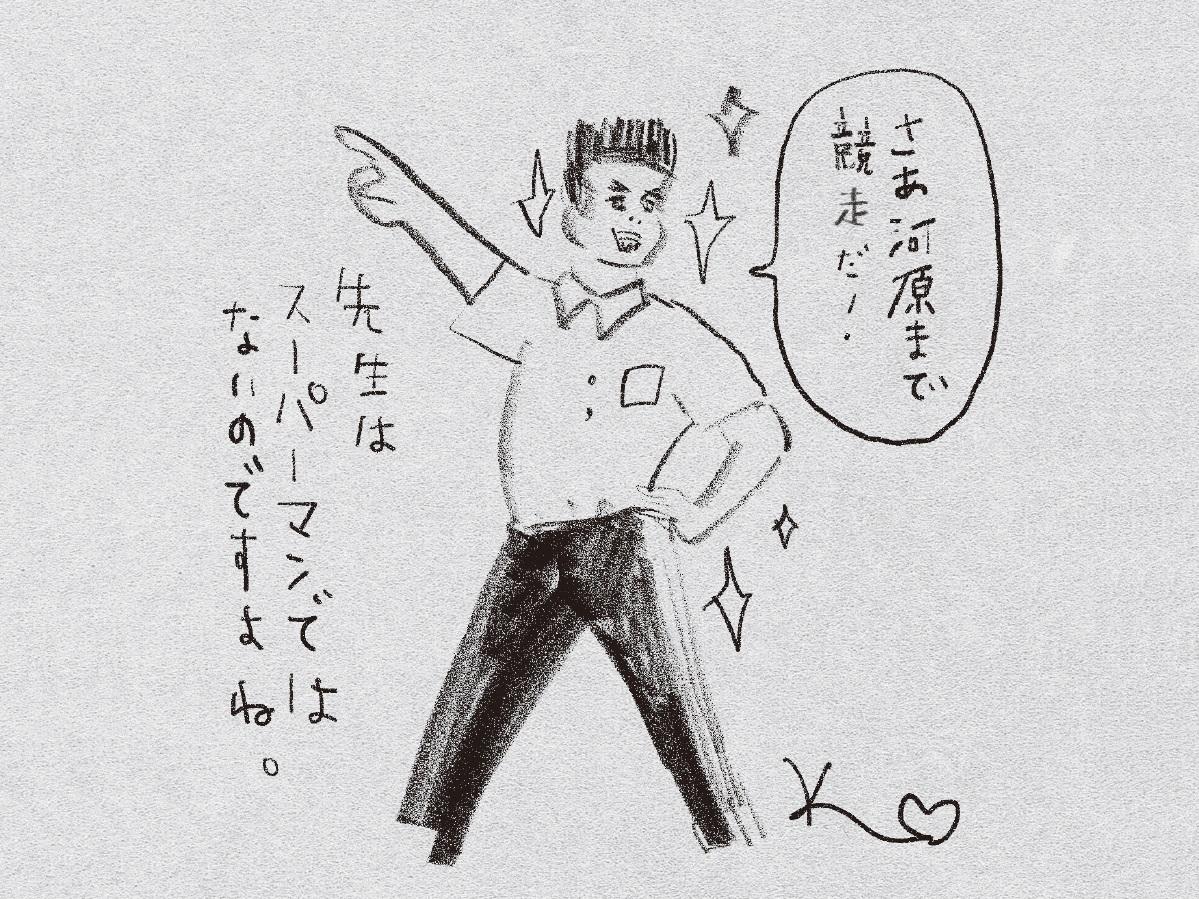 さあ河原まで
競走だ！
先生は
スーパーマンでは
ないのですよね。
K